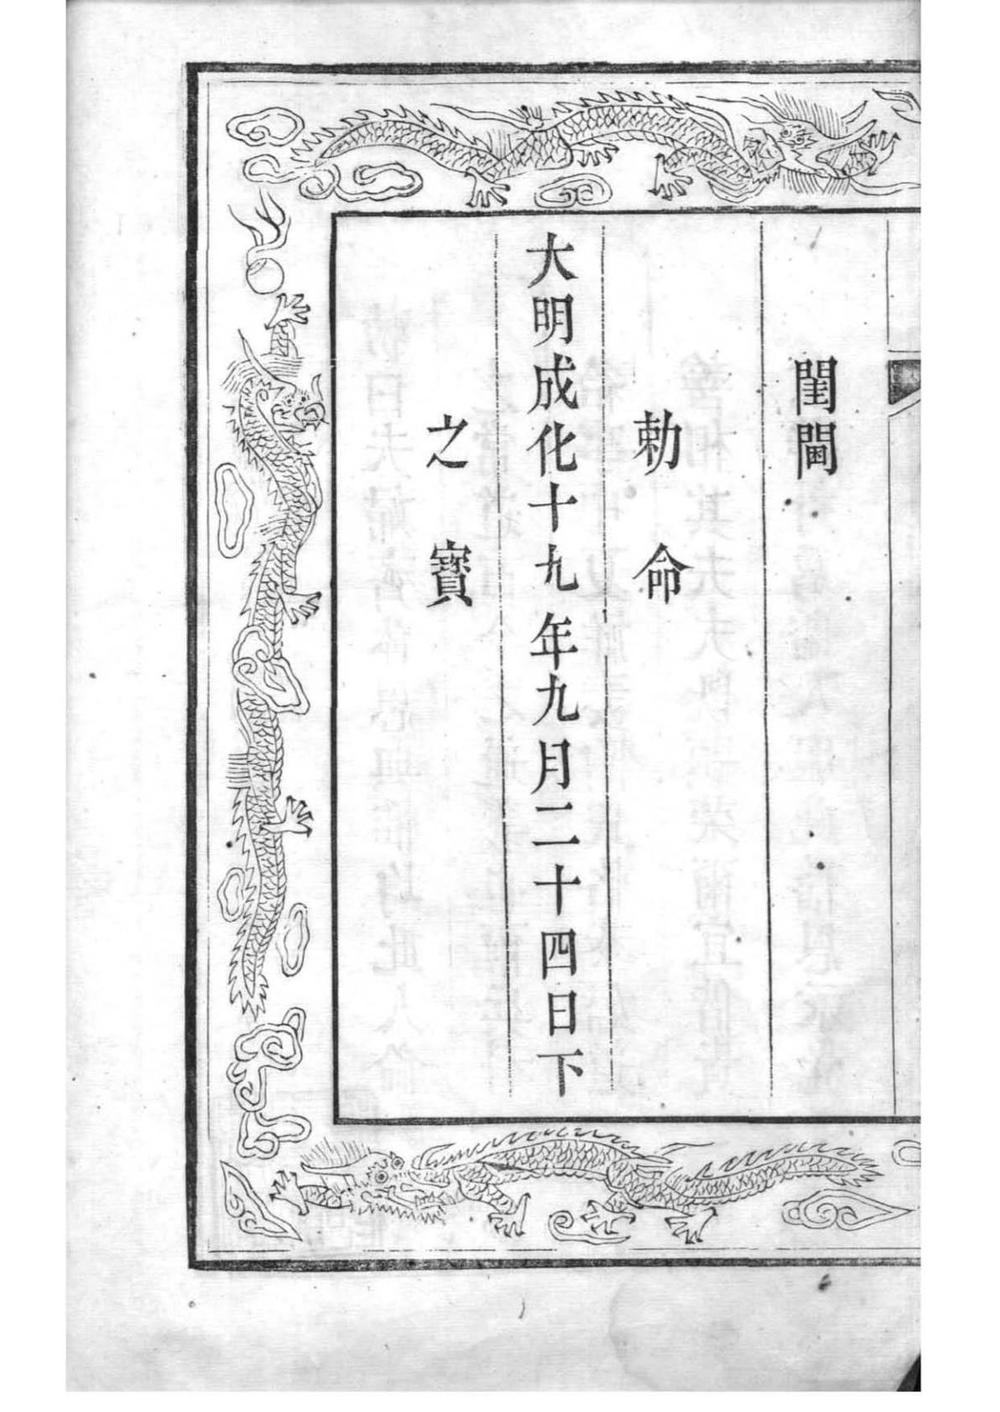 閨閫
勅命
大明成化十九年九月二十四日下
之寶